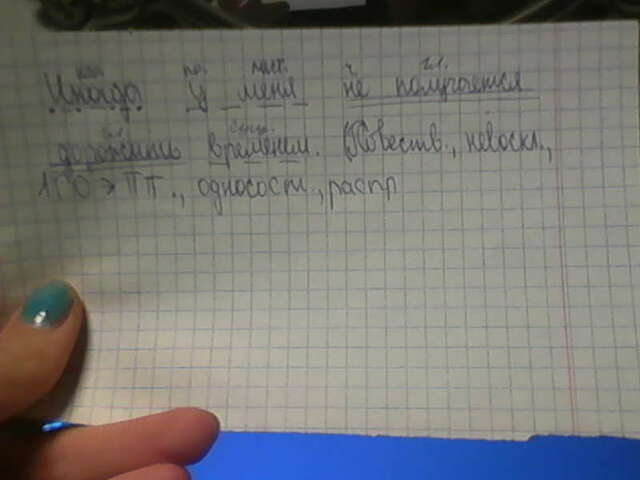 нар. пр. мест. ч. гл.
Иногда у меня не получается
гл. сущ.
дорожить временем. (Повеств., невоскл.,
1ГО > ПП., односост., распр